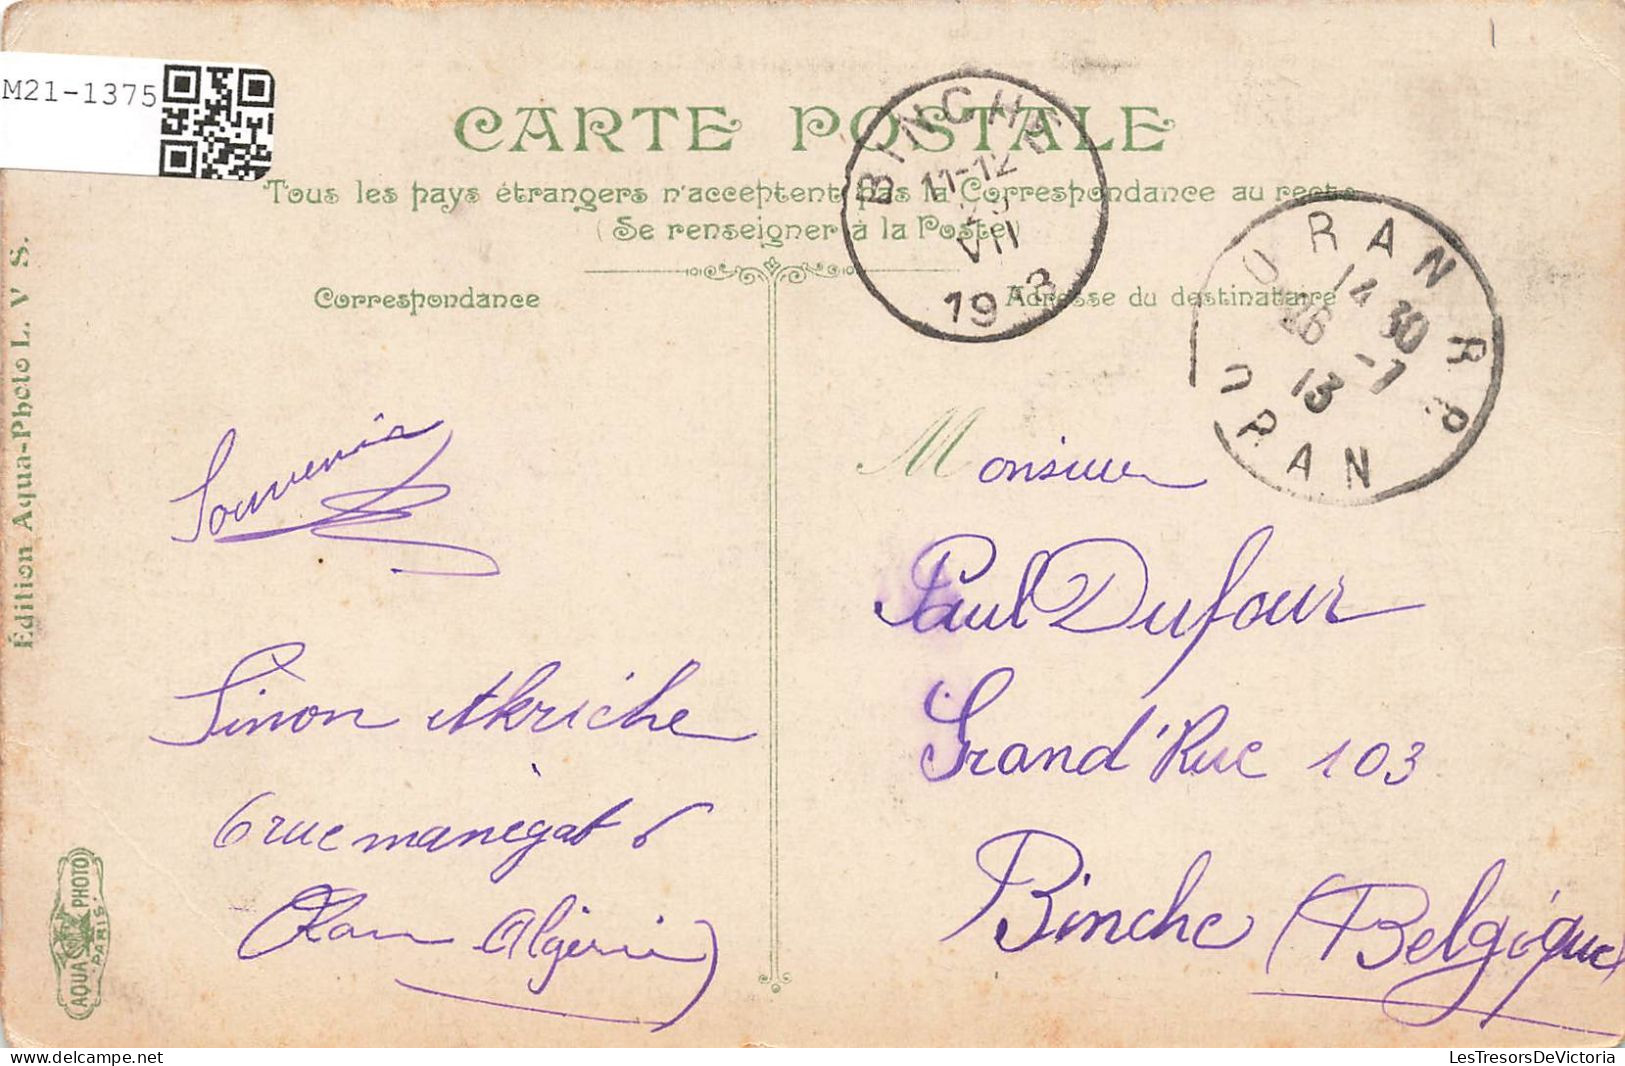 M21-1375
CARTE POSTALE
Tous les pays étrangers n'acceptent pas la Correspondance au recto
(Se renseigner à la Poste)
Correspondance
Adresse du destinataire
BINCHE
11-12
VII
1913
ORAN R P
14 30
26 -7
13
ORAN
Souvenir
Simon Akriche
6 rue manégat 6
Oran Algérie)
Monsieur
Paul Dufour
Grand'Rue 103
Binche (Belgique)
Édition Aqua-Photo L. V S.
AQUA PHOTO
PARIS
LesTresorsDeVictoria